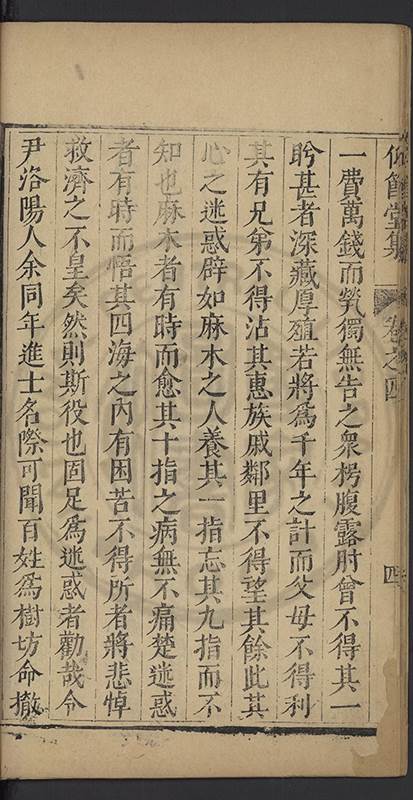 仰節堂集 卷之四 四
一費萬錢而煢獨無告之衆枵腹露肘曾不得其一
盻甚者深藏厚殖若將爲千年之計而父母不得利
其有兄弟不得沾其惠族戚鄰里不得望其餘此其
心之迷惑辟如麻木之人養其一指忘其九指而不
知也麻木者有時而愈其十指之病無不痛楚迷惑
者有時而悟其四海之內有困苦不得所者將悲悼
救濟之不皇矣然則斯役也固足爲迷惑者勸哉令
尹洛陽人余同年進士名際可聞百姓爲樹坊命撤